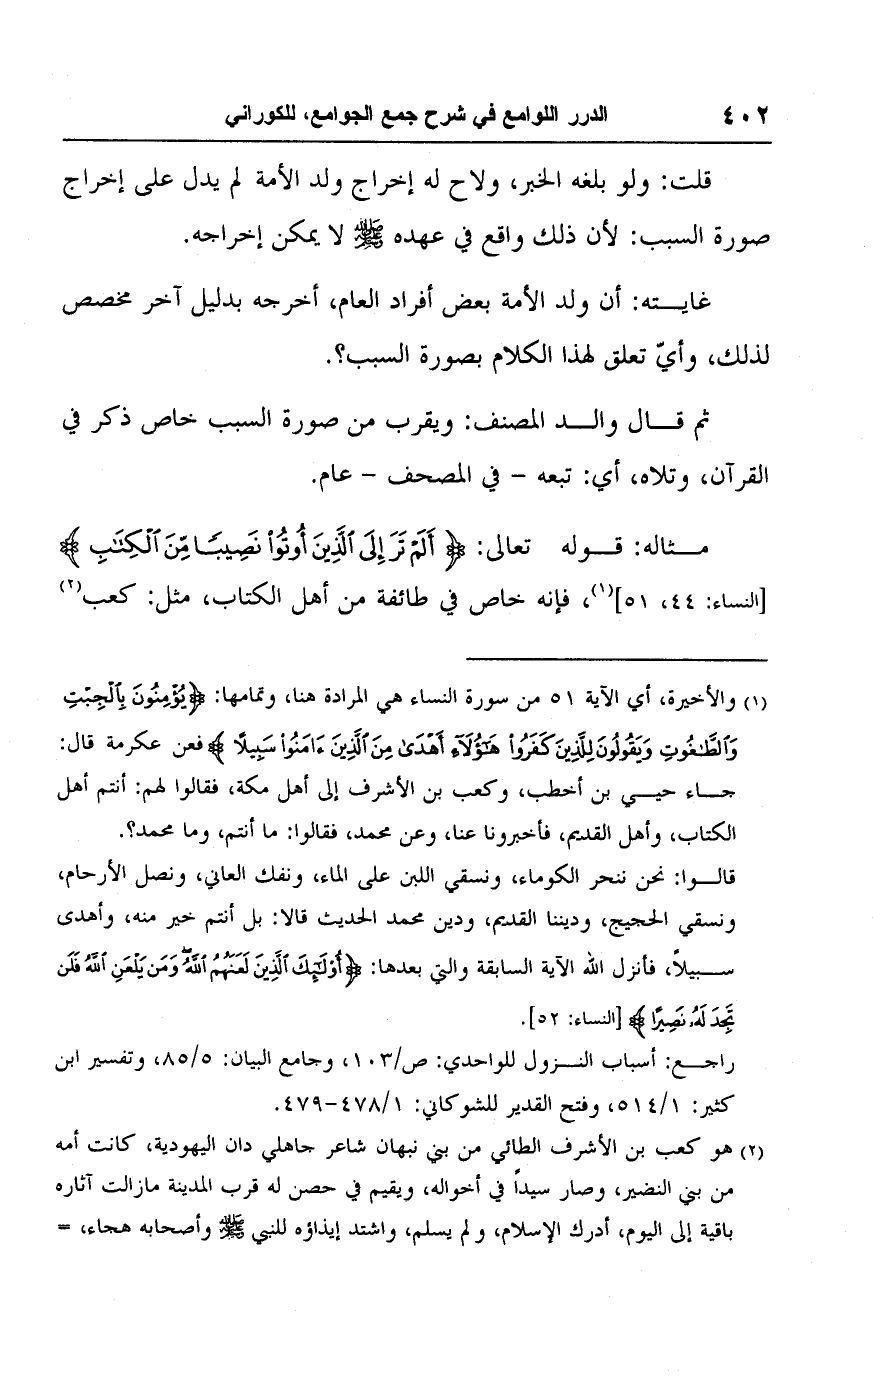 ٤٠٢ الدرر اللوامع في شرح جمع الجوامع، للكوراني
قلت: ولو بلغه الخبر، ولاح له إخراج ولد الأمة لم يدل على إخراج
صورة السبب: لأن ذلك واقع في عهده ﷺ لا يمكن إخراجه.
غايـــته: أن ولد الأمة بعض أفراد العام، أخرجه بدليل آخر مخصص
لذلك، وأيّ تعلق لهذا الكلام بصورة السبب؟.
ثم قـــال والـــد المصنف: ويقرب من صورة السبب خاص ذكر في
القرآن، وتلاه، أي: تبعه – في المصحف – عام.
مـــثاله: قـــوله تعالى: ﴿ أَلَمْ تَرَ إِلَى ٱلَّذِينَ أُوتُوا۟ نَصِيبًا مِّنَ ٱلْكِتَٰبِ ﴾
[النساء: ٤٤، ٥١](١)، فإنه خاص في طائفة من أهل الكتاب، مثل: كعب(٢)
(١) والأخيرة، أي الآية ٥١ من سورة النساء هي المرادة هنا، وتمامها: ﴿ يُؤْمِنُونَ بِٱلْجِبْتِ
وَٱلطَّٰغُوتِ وَيَقُولُونَ لِلَّذِينَ كَفَرُوا۟ هَٰٓؤُلَآءِ أَهْدَىٰ مِنَ ٱلَّذِينَ ءَامَنُوا۟ سَبِيلًا ﴾ فعن عكرمة قال:
جـــاء حيـــي بن أخطب، وكعب بن الأشرف إلى أهل مكة، فقالوا لهم: أنتم أهل
الكتاب، وأهل القديم، فأخبرونا عنا، وعن محمد، فقالوا: ما أنتم، وما محمد؟.
قالـــوا: نحن ننحر الكوماء، ونسقي اللبن على الماء، ونفك العاني، ونصل الأرحام،
ونسقي الحجيج، وديننا القديم، ودين محمد الحديث قالا: بل أنتم خير منه، وأهدى
ســـبيلاً، فأنزل الله الآية السابقة والتي بعدها: ﴿ أُو۟لَٰٓئِكَ ٱلَّذِينَ لَعَنَهُمُ ٱللَّهُ ۖ وَمَن يَلْعَنِ ٱللَّهُ فَلَن
تَجِدَ لَهُۥ نَصِيرًا ﴾ [النساء: ٥٢].
راجـــع: أسباب النـــزول للواحدي: ص/١٠٣، وجامع البيان: ٨٥/٥، وتفسير ابن
كثير: ٥١٤/١، وفتح القدير للشوكاني: ٤٧٨/١-٤٧٩.
(٢) هو كعب بن الأشرف الطائي من بني نبهان شاعر جاهلي دان اليهودية، كانت أمه
من بني النضير، وصار سيداً في أخواله، ويقيم في حصن له قرب المدينة مازالت آثاره
باقية إلى اليوم، أدرك الإسلام، ولم يسلم، واشتد إيذاؤه للنبي ﷺ وأصحابه هجاء، =